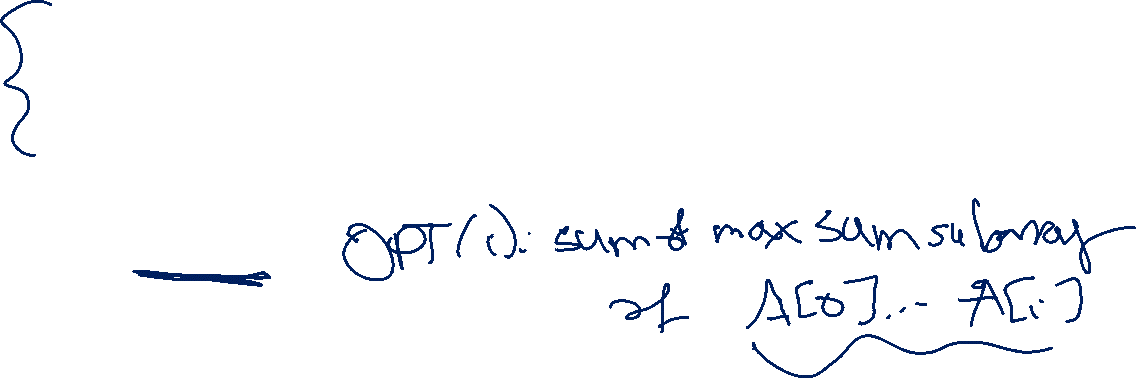 OPT(i): sum of max sum subarray
of A[0]... A[i]